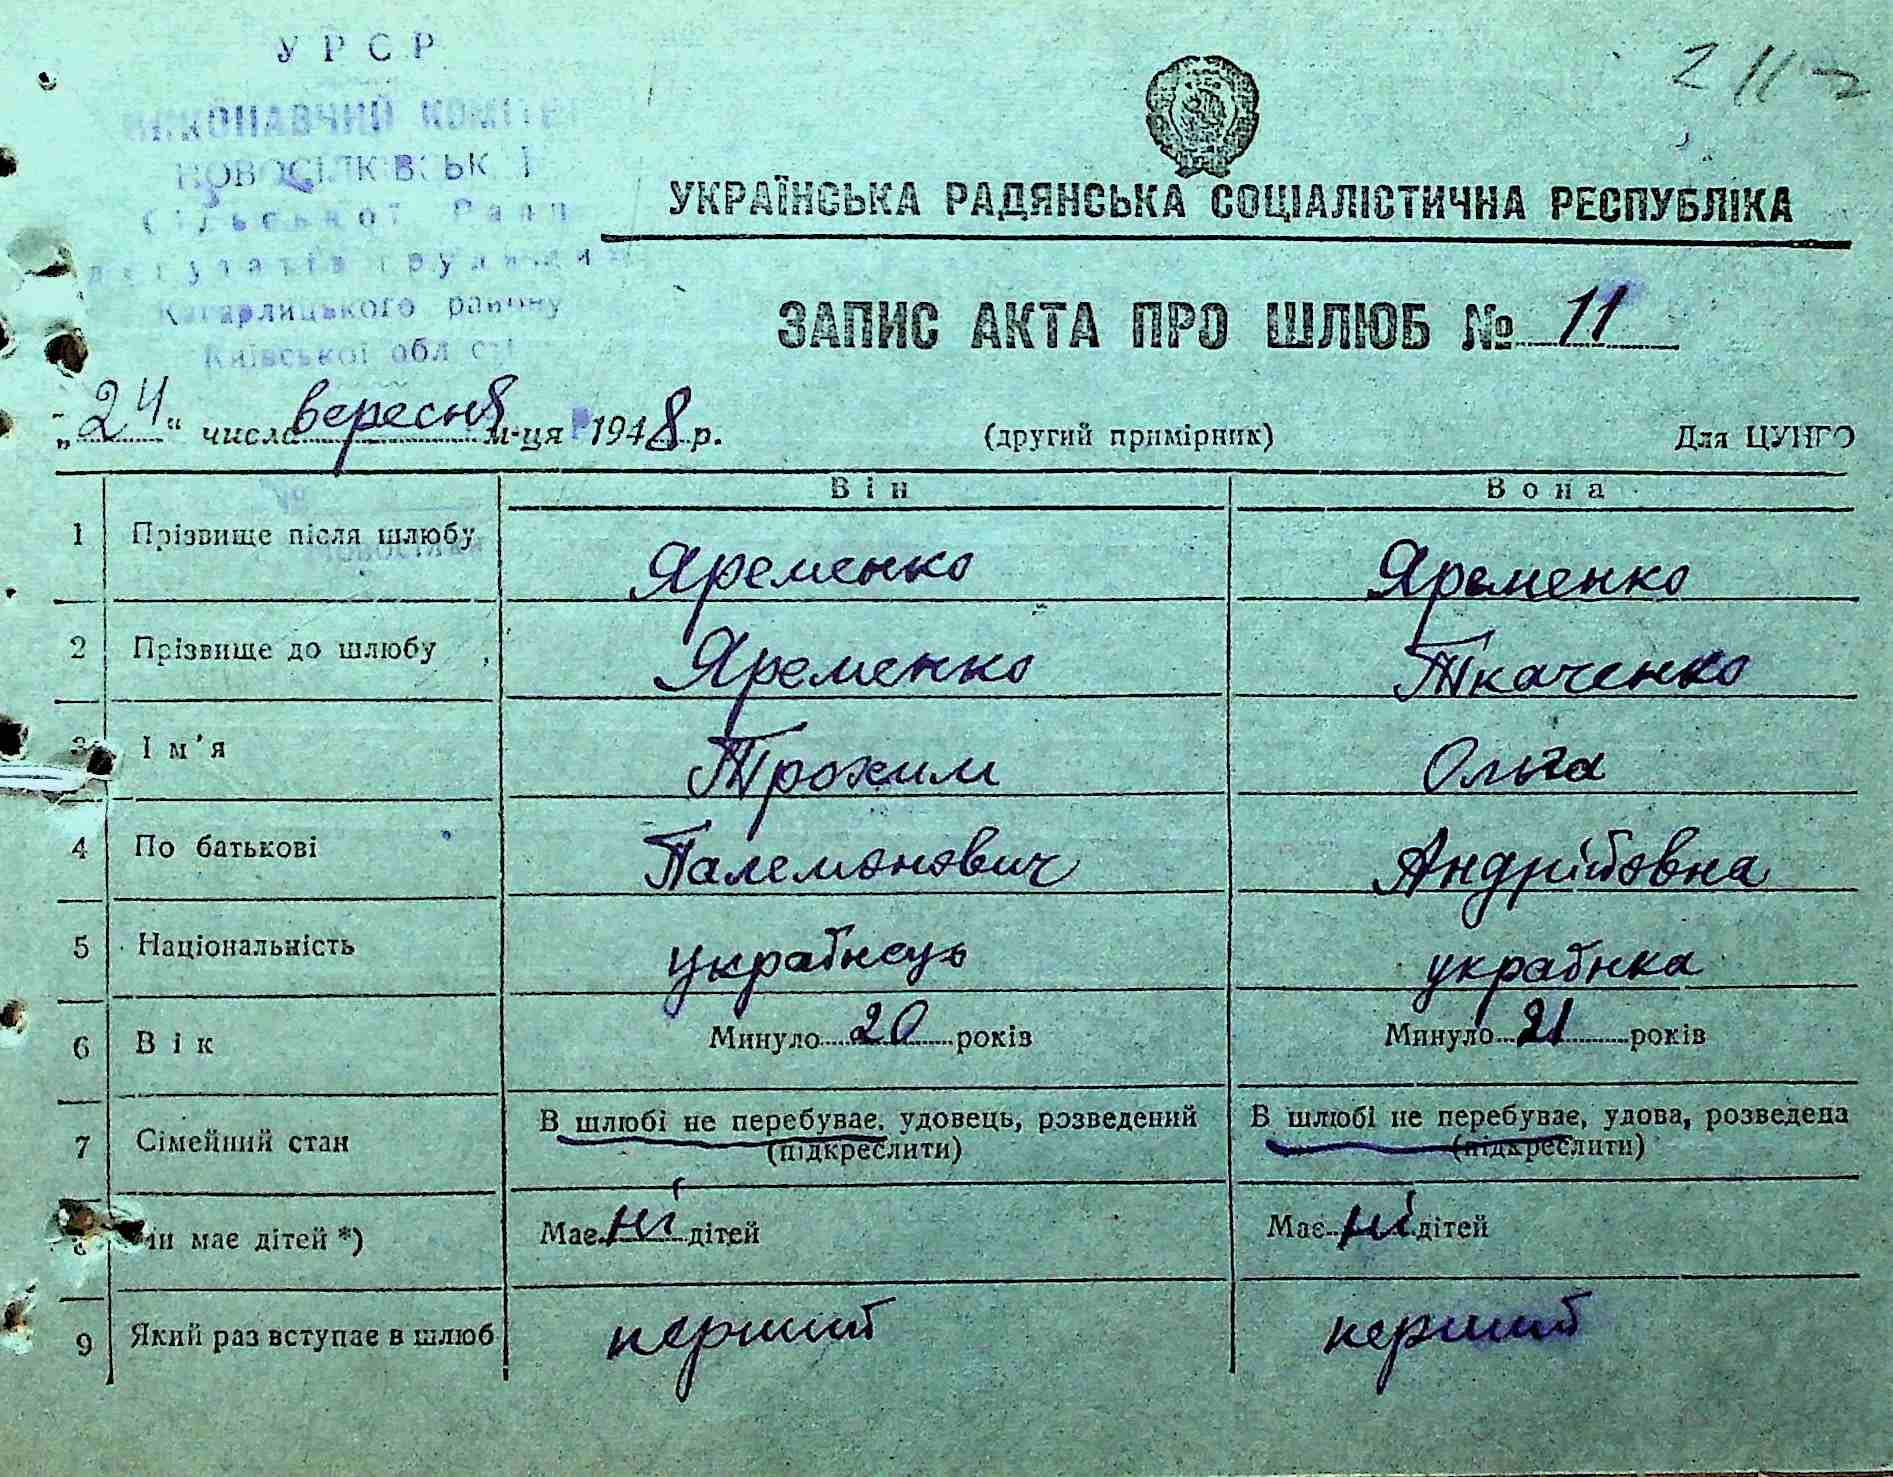 УРСР
ВИКОНАВЧИЙ КОМІТЕ
НОВОСІЛКІВСЬКІ
Сільської Ради
депутатів трудящих
Кагарлицького району
Київської обл
УКРАЇНСЬКА РАДЯНСЬКА СОЦІАЛІСТИЧНА РЕСПУБЛІКА
ЗАПИС АКТА ПРО ШЛЮБ № 11
„24“ числа вересня м-ця 1948 р. (другий примірник) Для ЦУНГО
Він Вона
1 Прізвище після шлюбу Яременко Яременко
2 Прізвище до шлюбу Яременко Ткаченко
3 Ім'я Трохим Ольга
4 По батькові Палемонович Андрійовна
5 Національність українець українка
6 Вік Минуло 20 років Минуло 21 років
7 Сімейний стан В шлюбі не перебуває, удовець, розведений В шлюбі не перебуває, удова, розведена
(підкреслити) (підкреслити)
8 Чи має дітей *) Має ні дітей Має ні дітей
9 Який раз вступає в шлюб перший перший